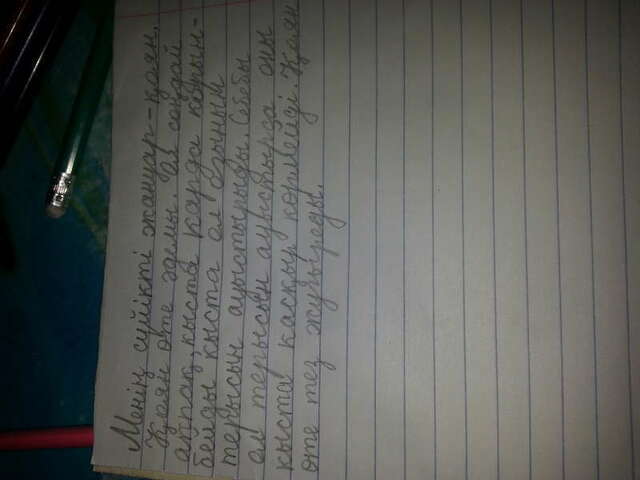 Менің сүйікті жануар - қоян.
Қоян өте әдемы. Ол сондай
аппақ, кыста карда көрын-
бейды кыста ол өзының
терысын ауыстырыды. Себебы
ол терысын ауыстырса оны
кыста касқыр көрмейді. Қоян
өте тез жугыреды.